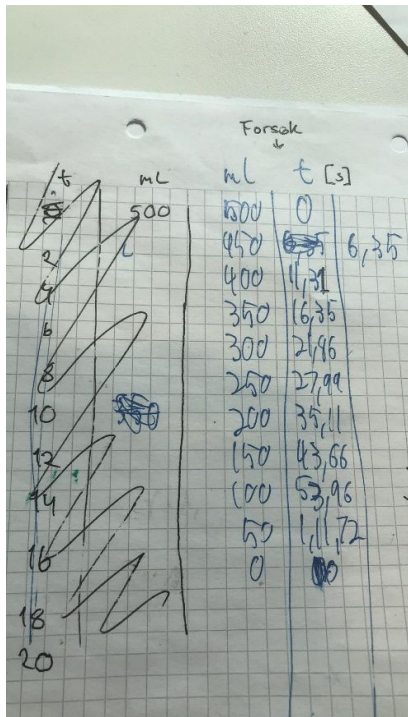 Forsøk
t mL
500
2
4
6
8
10
12
14
16
18
20
mL t [s]
500 0
450 6,35
400 11,31
350 16,35
300 21,86
250 27,99
200 35,11
150 43,66
100 53,96
50 1,11,72
0